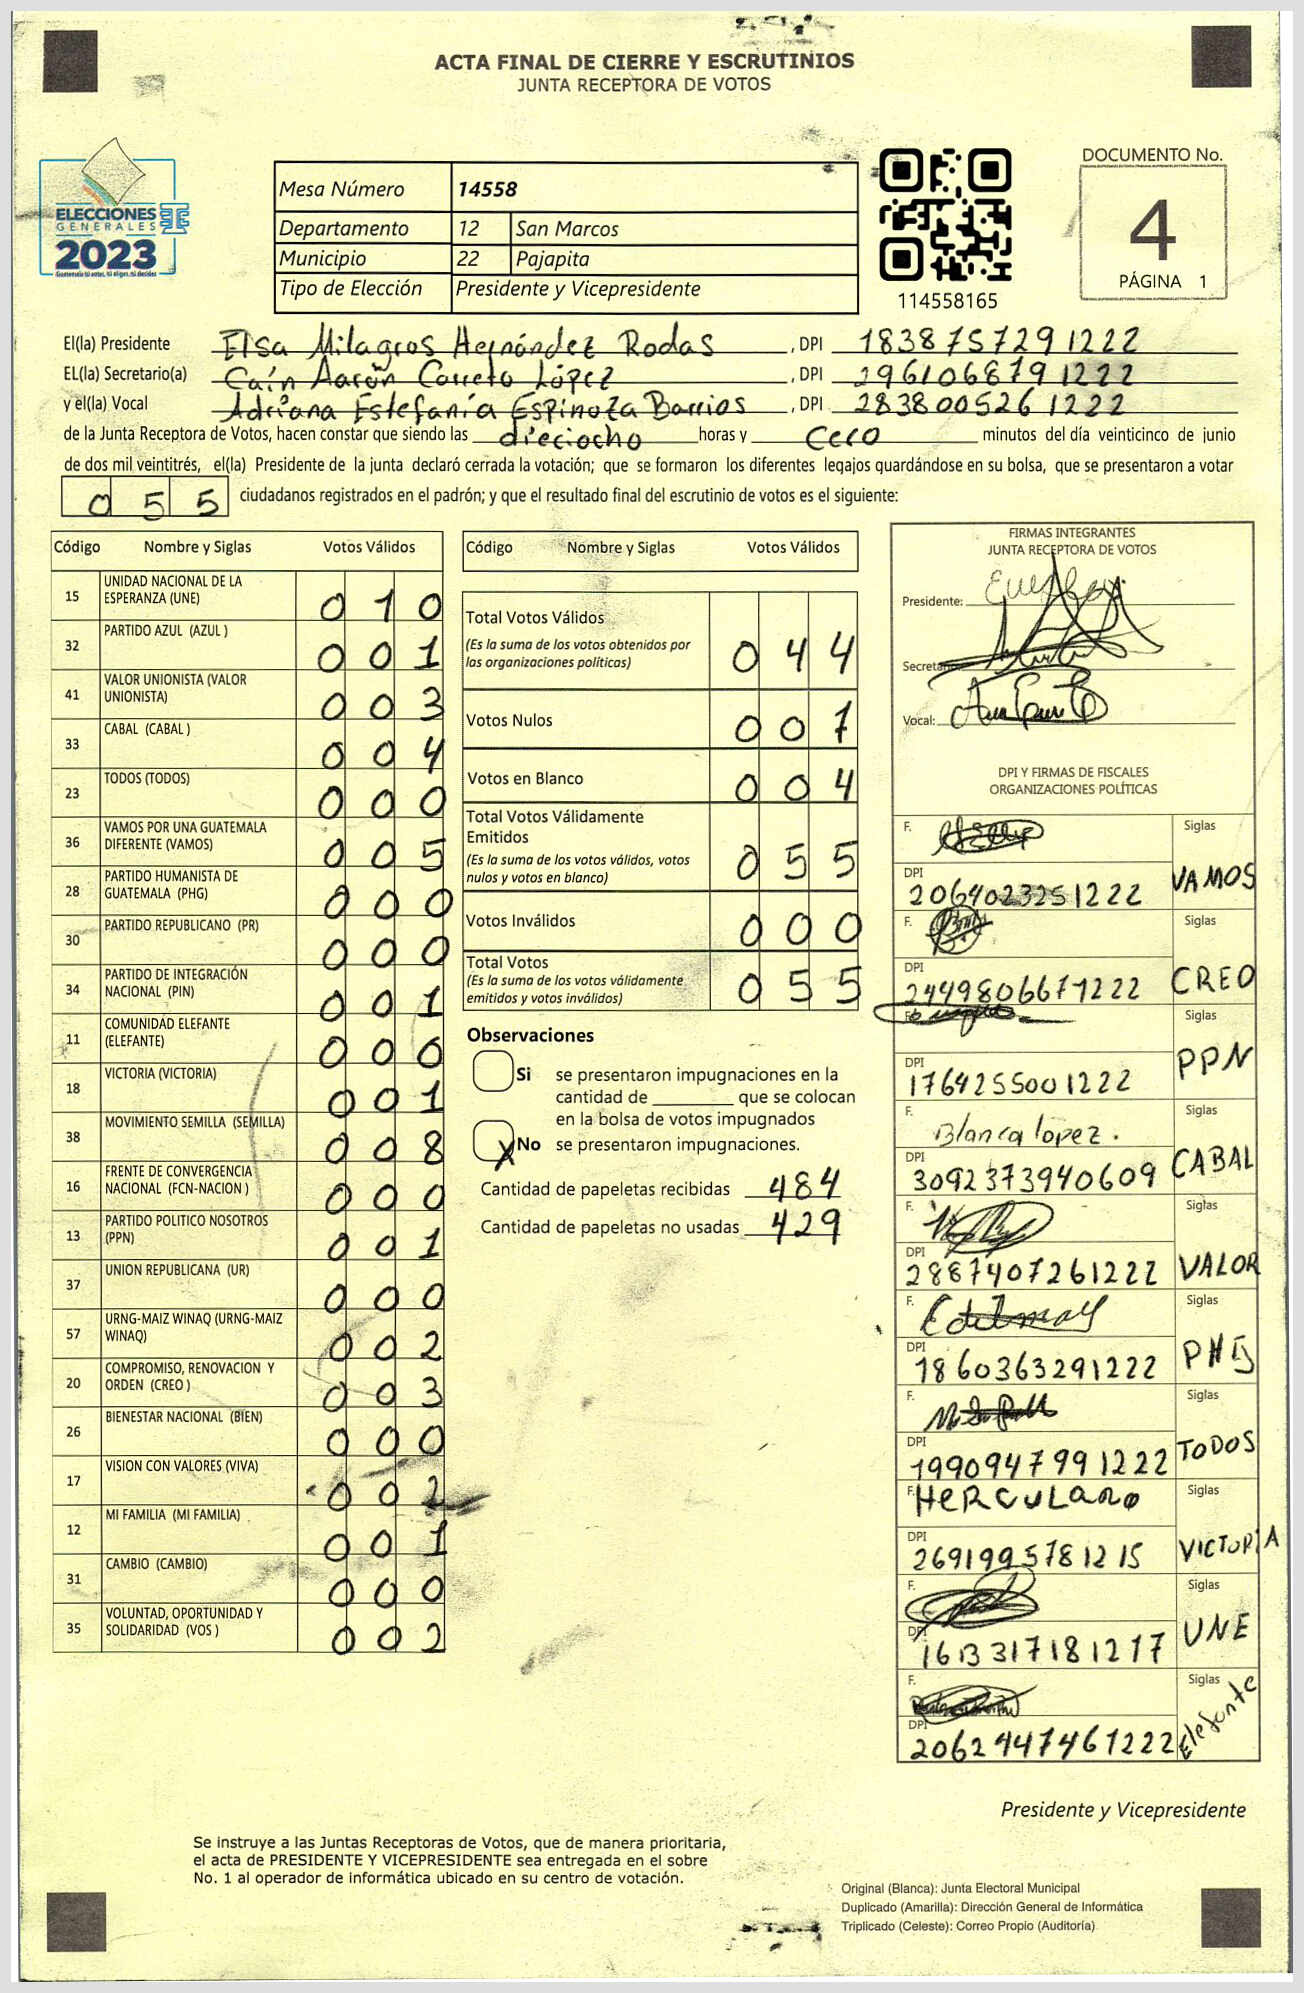 ACTA FINAL DE CIERRE Y ESCRUTINIOS
JUNTA RECEPTORA DE VOTOS
ELECCIONES
GENERALES
2023
Guatemala tú votas, tú eliges, tú decides
Mesa Número 14558
Departamento 12 San Marcos
Municipio 22 Pajapita
Tipo de Elección Presidente y Vicepresidente
114558165
DOCUMENTO No.
4
PÁGINA 1
El(la) Presidente Elsa Milagros Hernández Rodas , DPI 1838757291222
EL(la) Secretario(a) Caín Aarón Carreto López , DPI 2961068791222
y el(la) Vocal Adriana Estefanía Espinoza Barrios , DPI 2838005261222
de la Junta Receptora de Votos, hacen constar que siendo las dieciocho horas y cero minutos del día veinticinco de junio
de dos mil veintitrés, el(la) Presidente de la junta declaró cerrada la votación; que se formaron los diferentes legajos guardándose en su bolsa, que se presentaron a votar
055 ciudadanos registrados en el padrón; y que el resultado final del escrutinio de votos es el siguiente:
Código Nombre y Siglas Votos Válidos
15 UNIDAD NACIONAL DE LA ESPERANZA (UNE) 010
32 PARTIDO AZUL (AZUL ) 001
41 VALOR UNIONISTA (VALOR UNIONISTA) 003
33 CABAL (CABAL ) 004
23 TODOS (TODOS) 000
36 VAMOS POR UNA GUATEMALA DIFERENTE (VAMOS) 005
28 PARTIDO HUMANISTA DE GUATEMALA (PHG) 000
30 PARTIDO REPUBLICANO (PR) 000
34 PARTIDO DE INTEGRACIÓN NACIONAL (PIN) 001
11 COMUNIDAD ELEFANTE (ELEFANTE) 000
18 VICTORIA (VICTORIA) 001
38 MOVIMIENTO SEMILLA (SEMILLA) 008
16 FRENTE DE CONVERGENCIA NACIONAL (FCN-NACION ) 000
13 PARTIDO POLITICO NOSOTROS (PPN) 001
37 UNION REPUBLICANA (UR) 000
57 URNG-MAIZ WINAQ (URNG-MAIZ WINAQ) 002
20 COMPROMISO, RENOVACION Y ORDEN (CREO ) 003
26 BIENESTAR NACIONAL (BIEN) 000
17 VISION CON VALORES (VIVA) 002
12 MI FAMILIA (MI FAMILIA) 001
31 CAMBIO (CAMBIO) 000
35 VOLUNTAD, OPORTUNIDAD Y SOLIDARIDAD (VOS ) 002
Código Nombre y Siglas Votos Válidos
Total Votos Válidos 044
(Es la suma de los votos obtenidos por
las organizaciones políticas)
Votos Nulos 007
Votos en Blanco 004
Total Votos Válidamente
Emitidos 055
(Es la suma de los votos válidos, votos
nulos y votos en blanco)
Votos Inválidos 000
Total Votos 055
(Es la suma de los votos válidamente
emitidos y votos inválidos)
Observaciones
Si se presentaron impugnaciones en la
cantidad de ________ que se colocan
en la bolsa de votos impugnados
X No se presentaron impugnaciones.
Cantidad de papeletas recibidas 484
Cantidad de papeletas no usadas 429
FIRMAS INTEGRANTES
JUNTA RECEPTORA DE VOTOS
Presidente:
Secretario:
Vocal:
DPI Y FIRMAS DE FISCALES
ORGANIZACIONES POLÍTICAS
F. Siglas
DPI 2064023251222 VAMOS
F. Siglas
DPI 2449806671222 CREO
F. Siglas
DPI 1764255001222 PPN
F. Blanca lopez. Siglas
DPI 3092373940609 CABAL
F. Siglas
DPI 2887407261222 VALOR
F. Siglas
DPI 1860363291222 PHG
F. Siglas
DPI 1990947991222 TODOS
F. HERCULANO Siglas
DPI 2691995781215 VICTORIA
F. Siglas
DPI 1613317181217 UNE
F. Siglas
DPI 2062447461222 Elefante
Presidente y Vicepresidente
Se instruye a las Juntas Receptoras de Votos, que de manera prioritaria,
el acta de PRESIDENTE Y VICEPRESIDENTE sea entregada en el sobre
No. 1 al operador de informática ubicado en su centro de votación.
Original (Blanca): Junta Electoral Municipal
Duplicado (Amarilla): Dirección General de Informática
Triplicado (Celeste): Correo Propio (Auditoría)